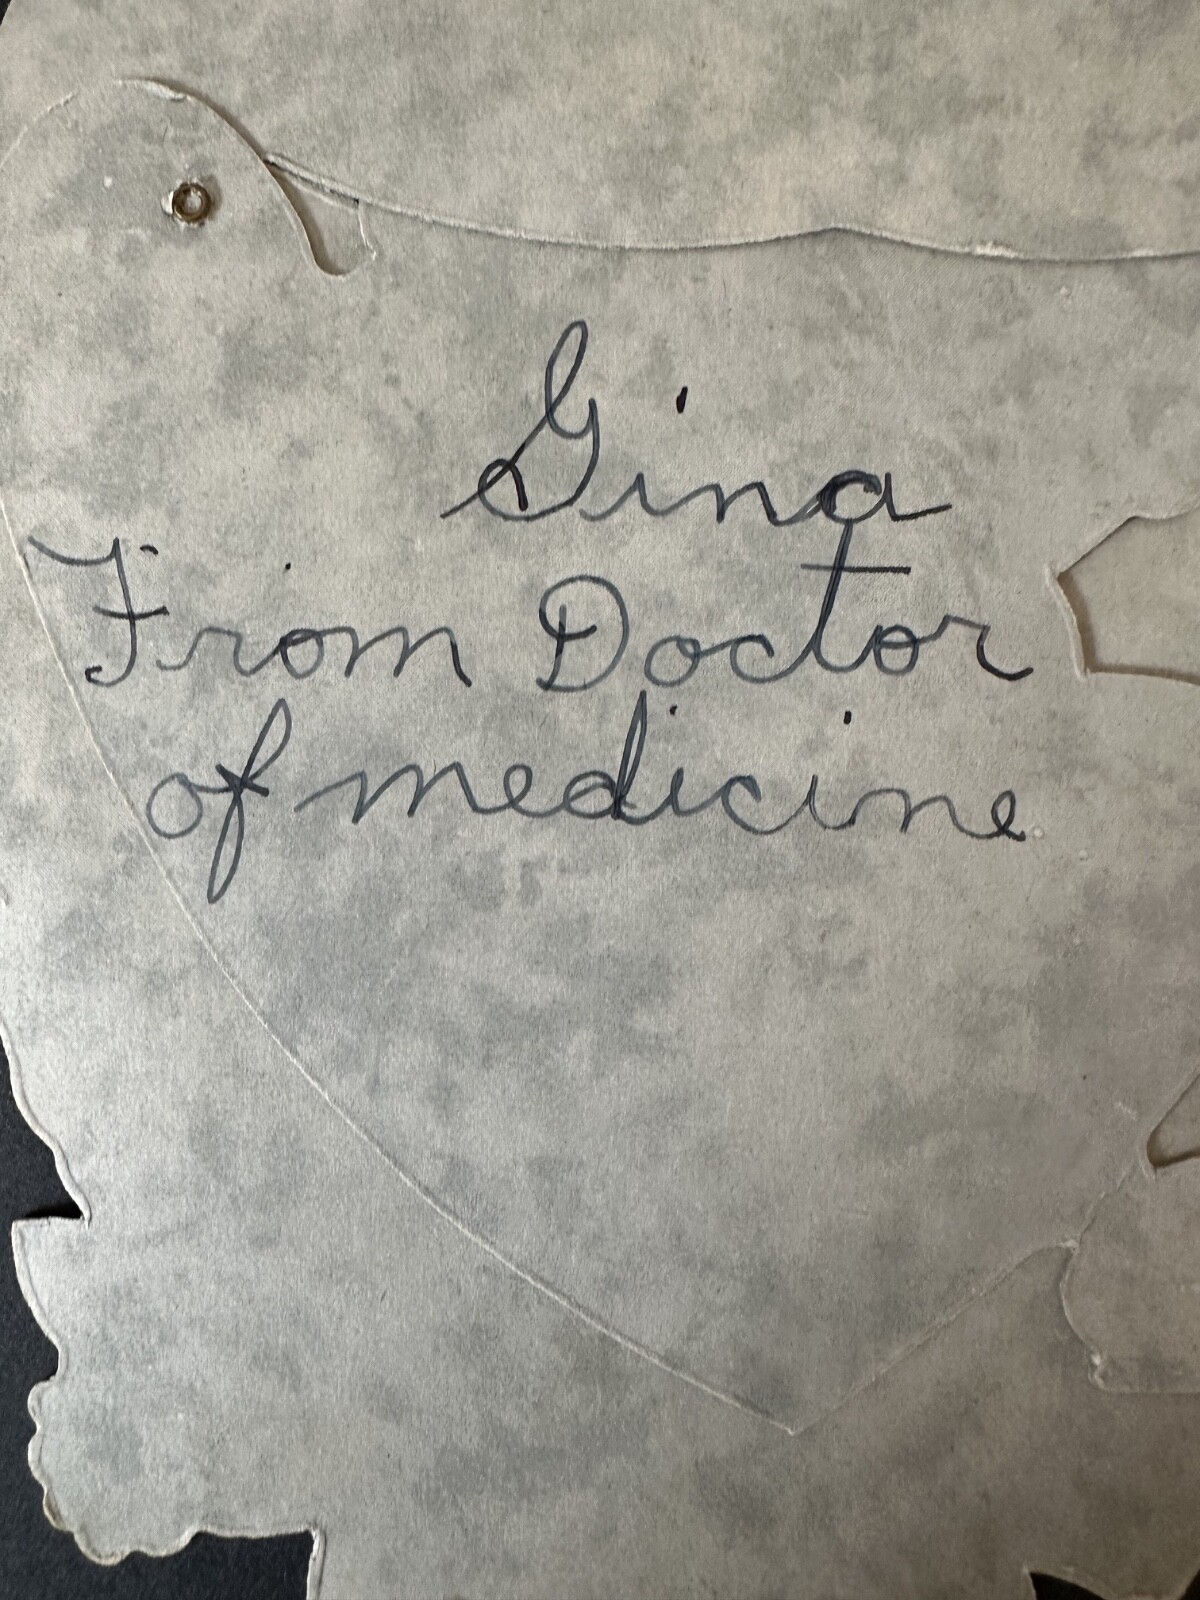 Gina
From Doctor
of medicine